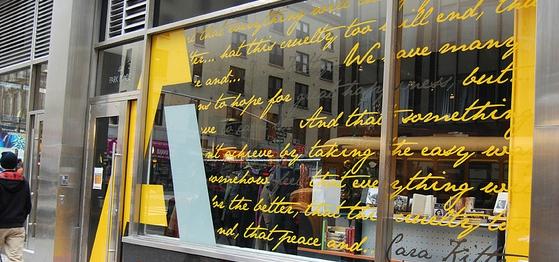 that everything
er... hat this cruelty too ill end, tha
We ave many
e and...
but.
ns to hope for
And that something
ve
n't achieve by taking the easy w
somehow that eve ything w
be the better, that this cruelty to
nd, that peace and
Cara Kitt